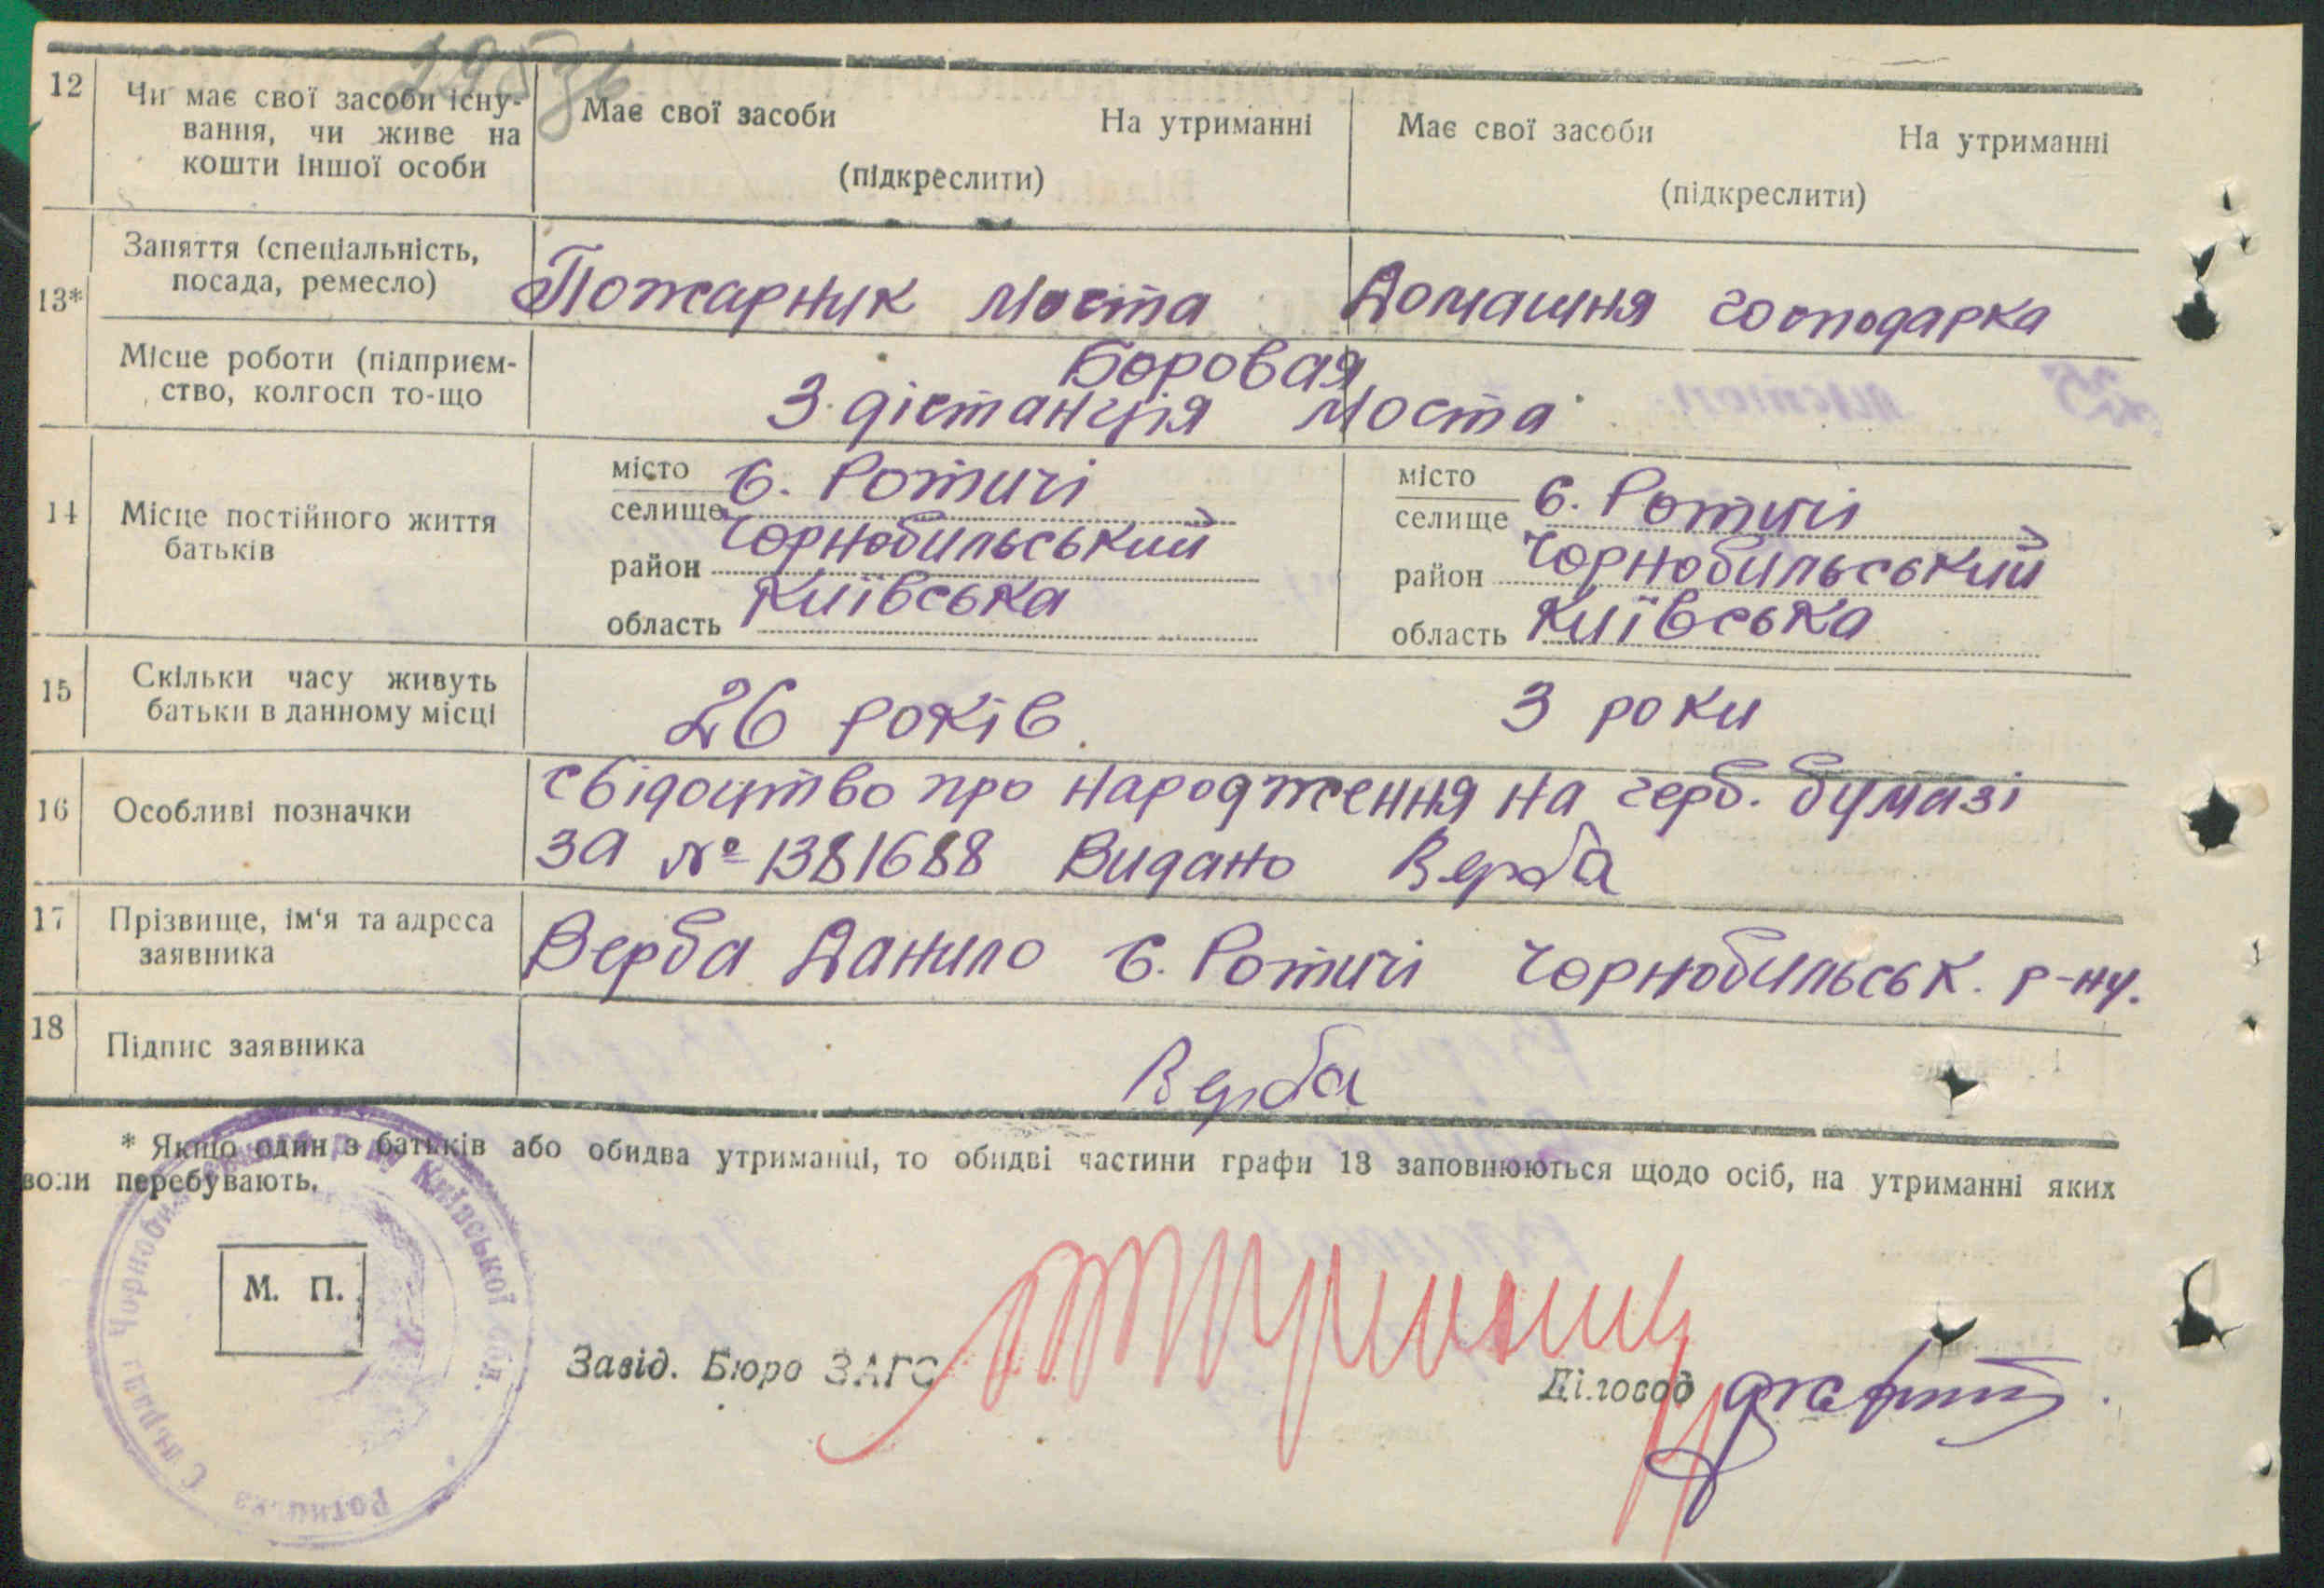 12 Чи має свої засоби існу- Має свої засоби На утриманні Має свої засоби На утриманні
вання, чи живе на
кошти іншої особи (підкреслити) (підкреслити)
Заняття (спеціальність,
посада, ремесло) Пожарник моста Домашня господарка
13*
Місце роботи (підприєм- Боровая
ство, колгосп то-що 3 дістанція моста
місто с. Ротичі місто с. Ротичі
14 Місце постійного життя селище селище
батьків район Чорнобильський район Чорнобильський
область Київська область Київська
15 Скільки часу живуть 26 років. 3 роки
батьки в данному місці
16 Особливі позначки свідоцтво про народження на герб. бумазі
за № 1381688 Видано Верба
17 Прізвище, ім‘я та адреса
заявника Верба Данило с. Ротичі Чорнобильськ. р-ну.
18 Підпис заявника Верба
* Якщо один з батьків або обидва утриманці, то обидві частини графи 13 заповнюються щодо осіб, на утриманні яких
воли перебувають.
М. П.
Завід. Бюро ЗАГС Діловод
Київської обл.